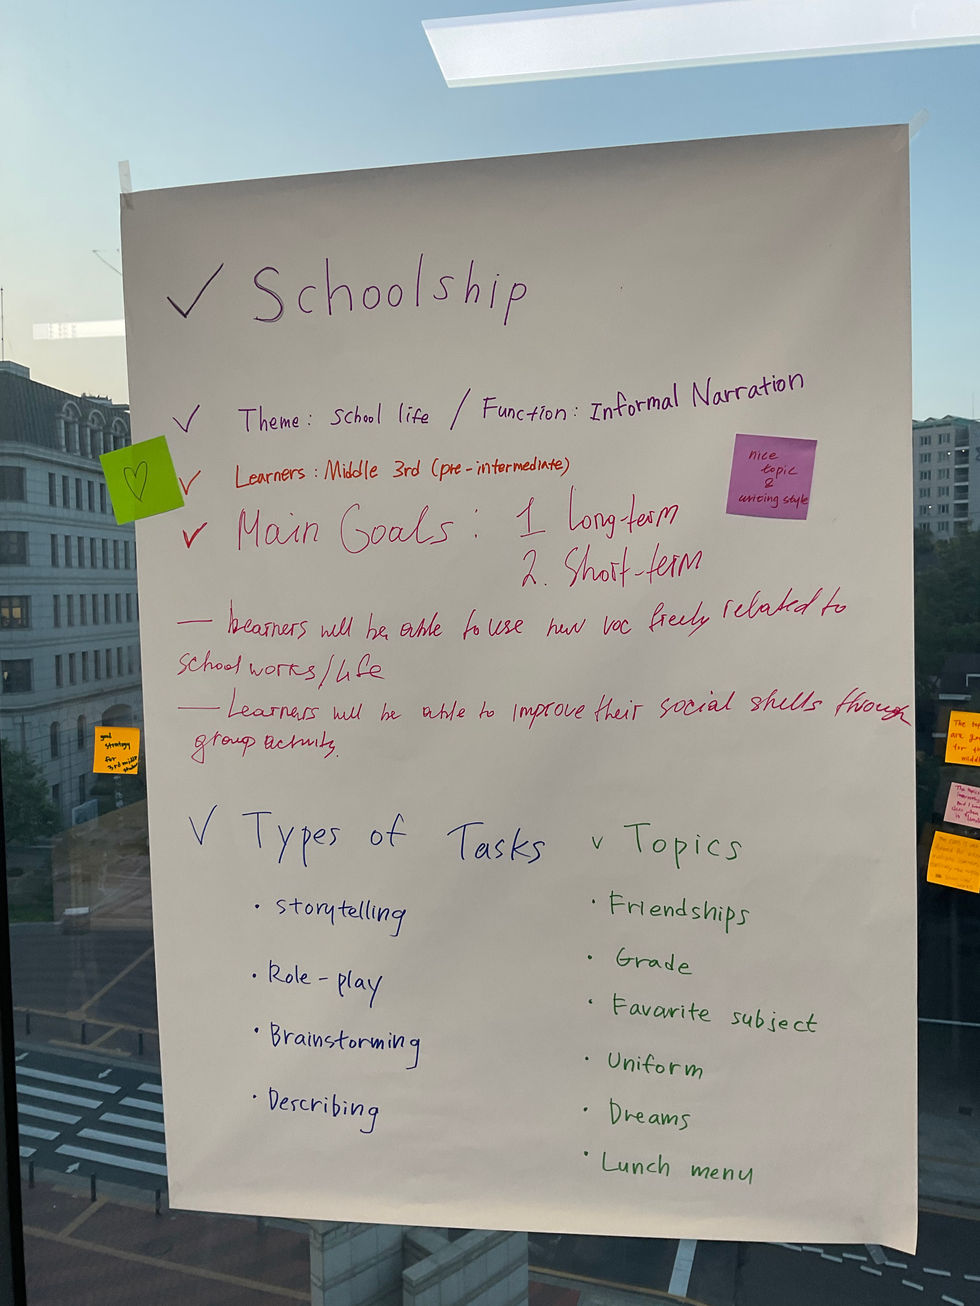 Schoolship
Theme: School life / Function: Informal Narration
Learners: Middle 3rd (pre-intermediate)
nice
topic
&
writing style
Main Goals: 1 Long-term
2. Short-term
— Learners will be able to use new voc freely related to
school works/life
— Learners will be able to improve their social skills through
group activity.
good
strategy
for
3rd middle
Types of Tasks
• Storytelling
• Role-play
• Brainstorming
• Describing
Topics
• Friendships
• Grade
• Favorite subject
• Uniform
• Dreams
• Lunch menu
The
are
for